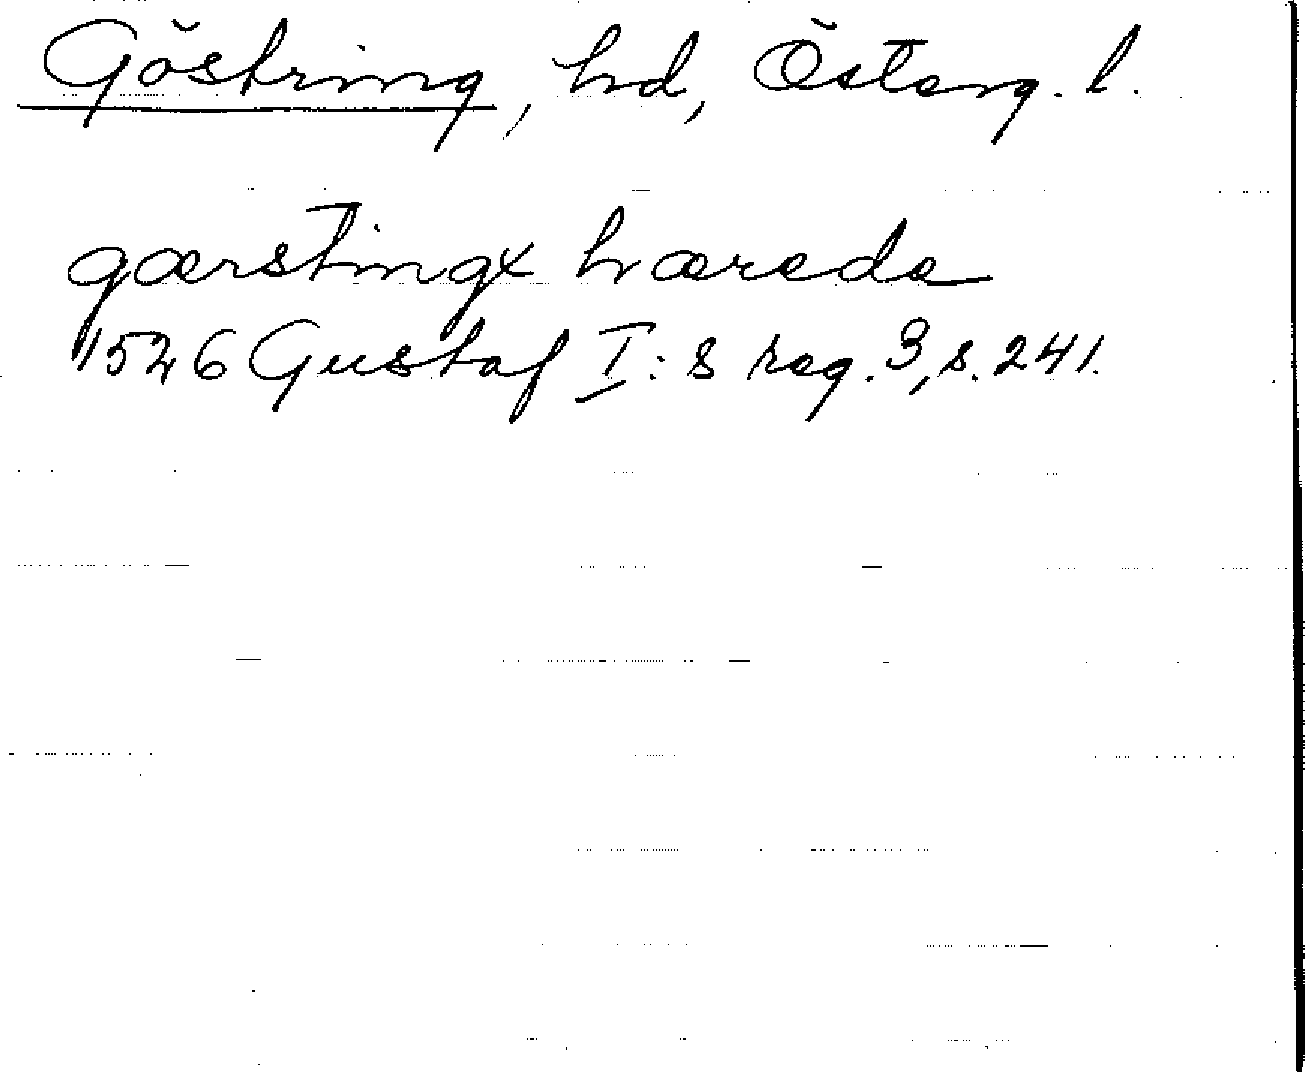 Göstring, hd, Österg. l.
gærstingx hærede
1526 Gustaf I:s reg. 3, s. 241.